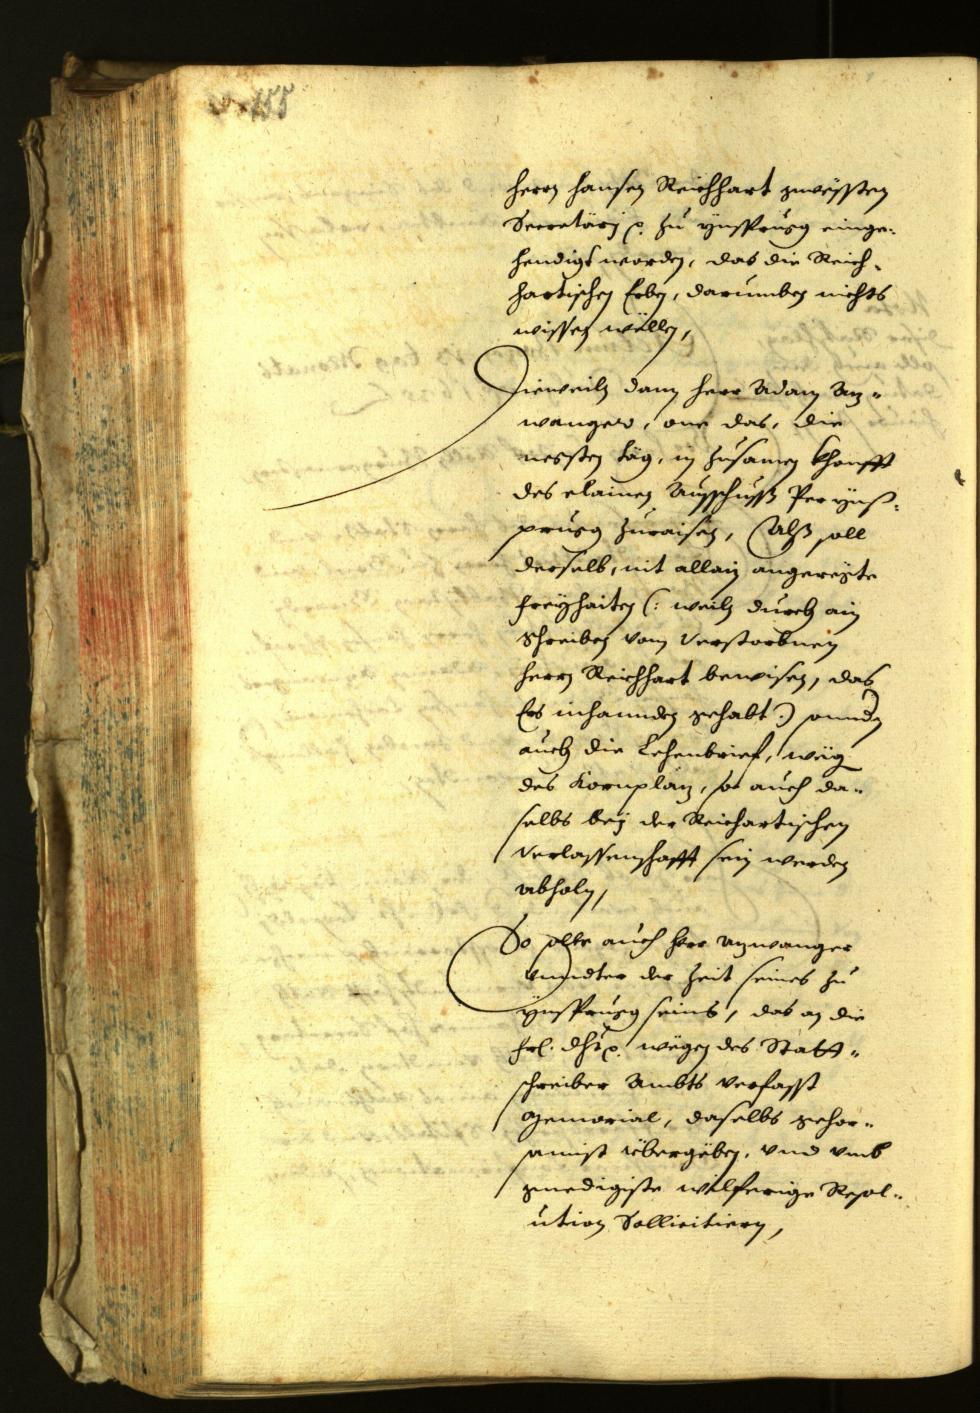 155
herrn hansen Reichhart gwessten
Secretärj p. zu ynsprugg einge¬
hendigt worden, das die Reich¬
hartischen Erben, darumben nichts
wissen wellen,
Dieweiln dann herr Adam An¬
wanger, one das, die
negsten täg, in zusamen khonfft
des clainen Ausschuss Per ynß¬
prugg zuraisen, Alß soll
derselb, nit allain angeregte
freyhaiten (: weiln durch ain
schreiben vom verstorbnen
herrn Reichhart bewisen, das
Ers inhannden gehabt :) sonndern
auch die Lehenbrief, weg
des Kornplaz, so auch da¬
selbs bey der Reichartischen
verlassenschafft sein werden
abholn,
So solle auch herr Anwanger
vnndter der Zeit seines zu
ynsprugg seins, das an die
frl. dht p. wegen des Statt¬
schreiber Ambts verfasst
Memorial, daselbs gehor¬
samist übergeben, vnd vmb
gnedigiste wilferige Resol¬
ution Sollicitiern,